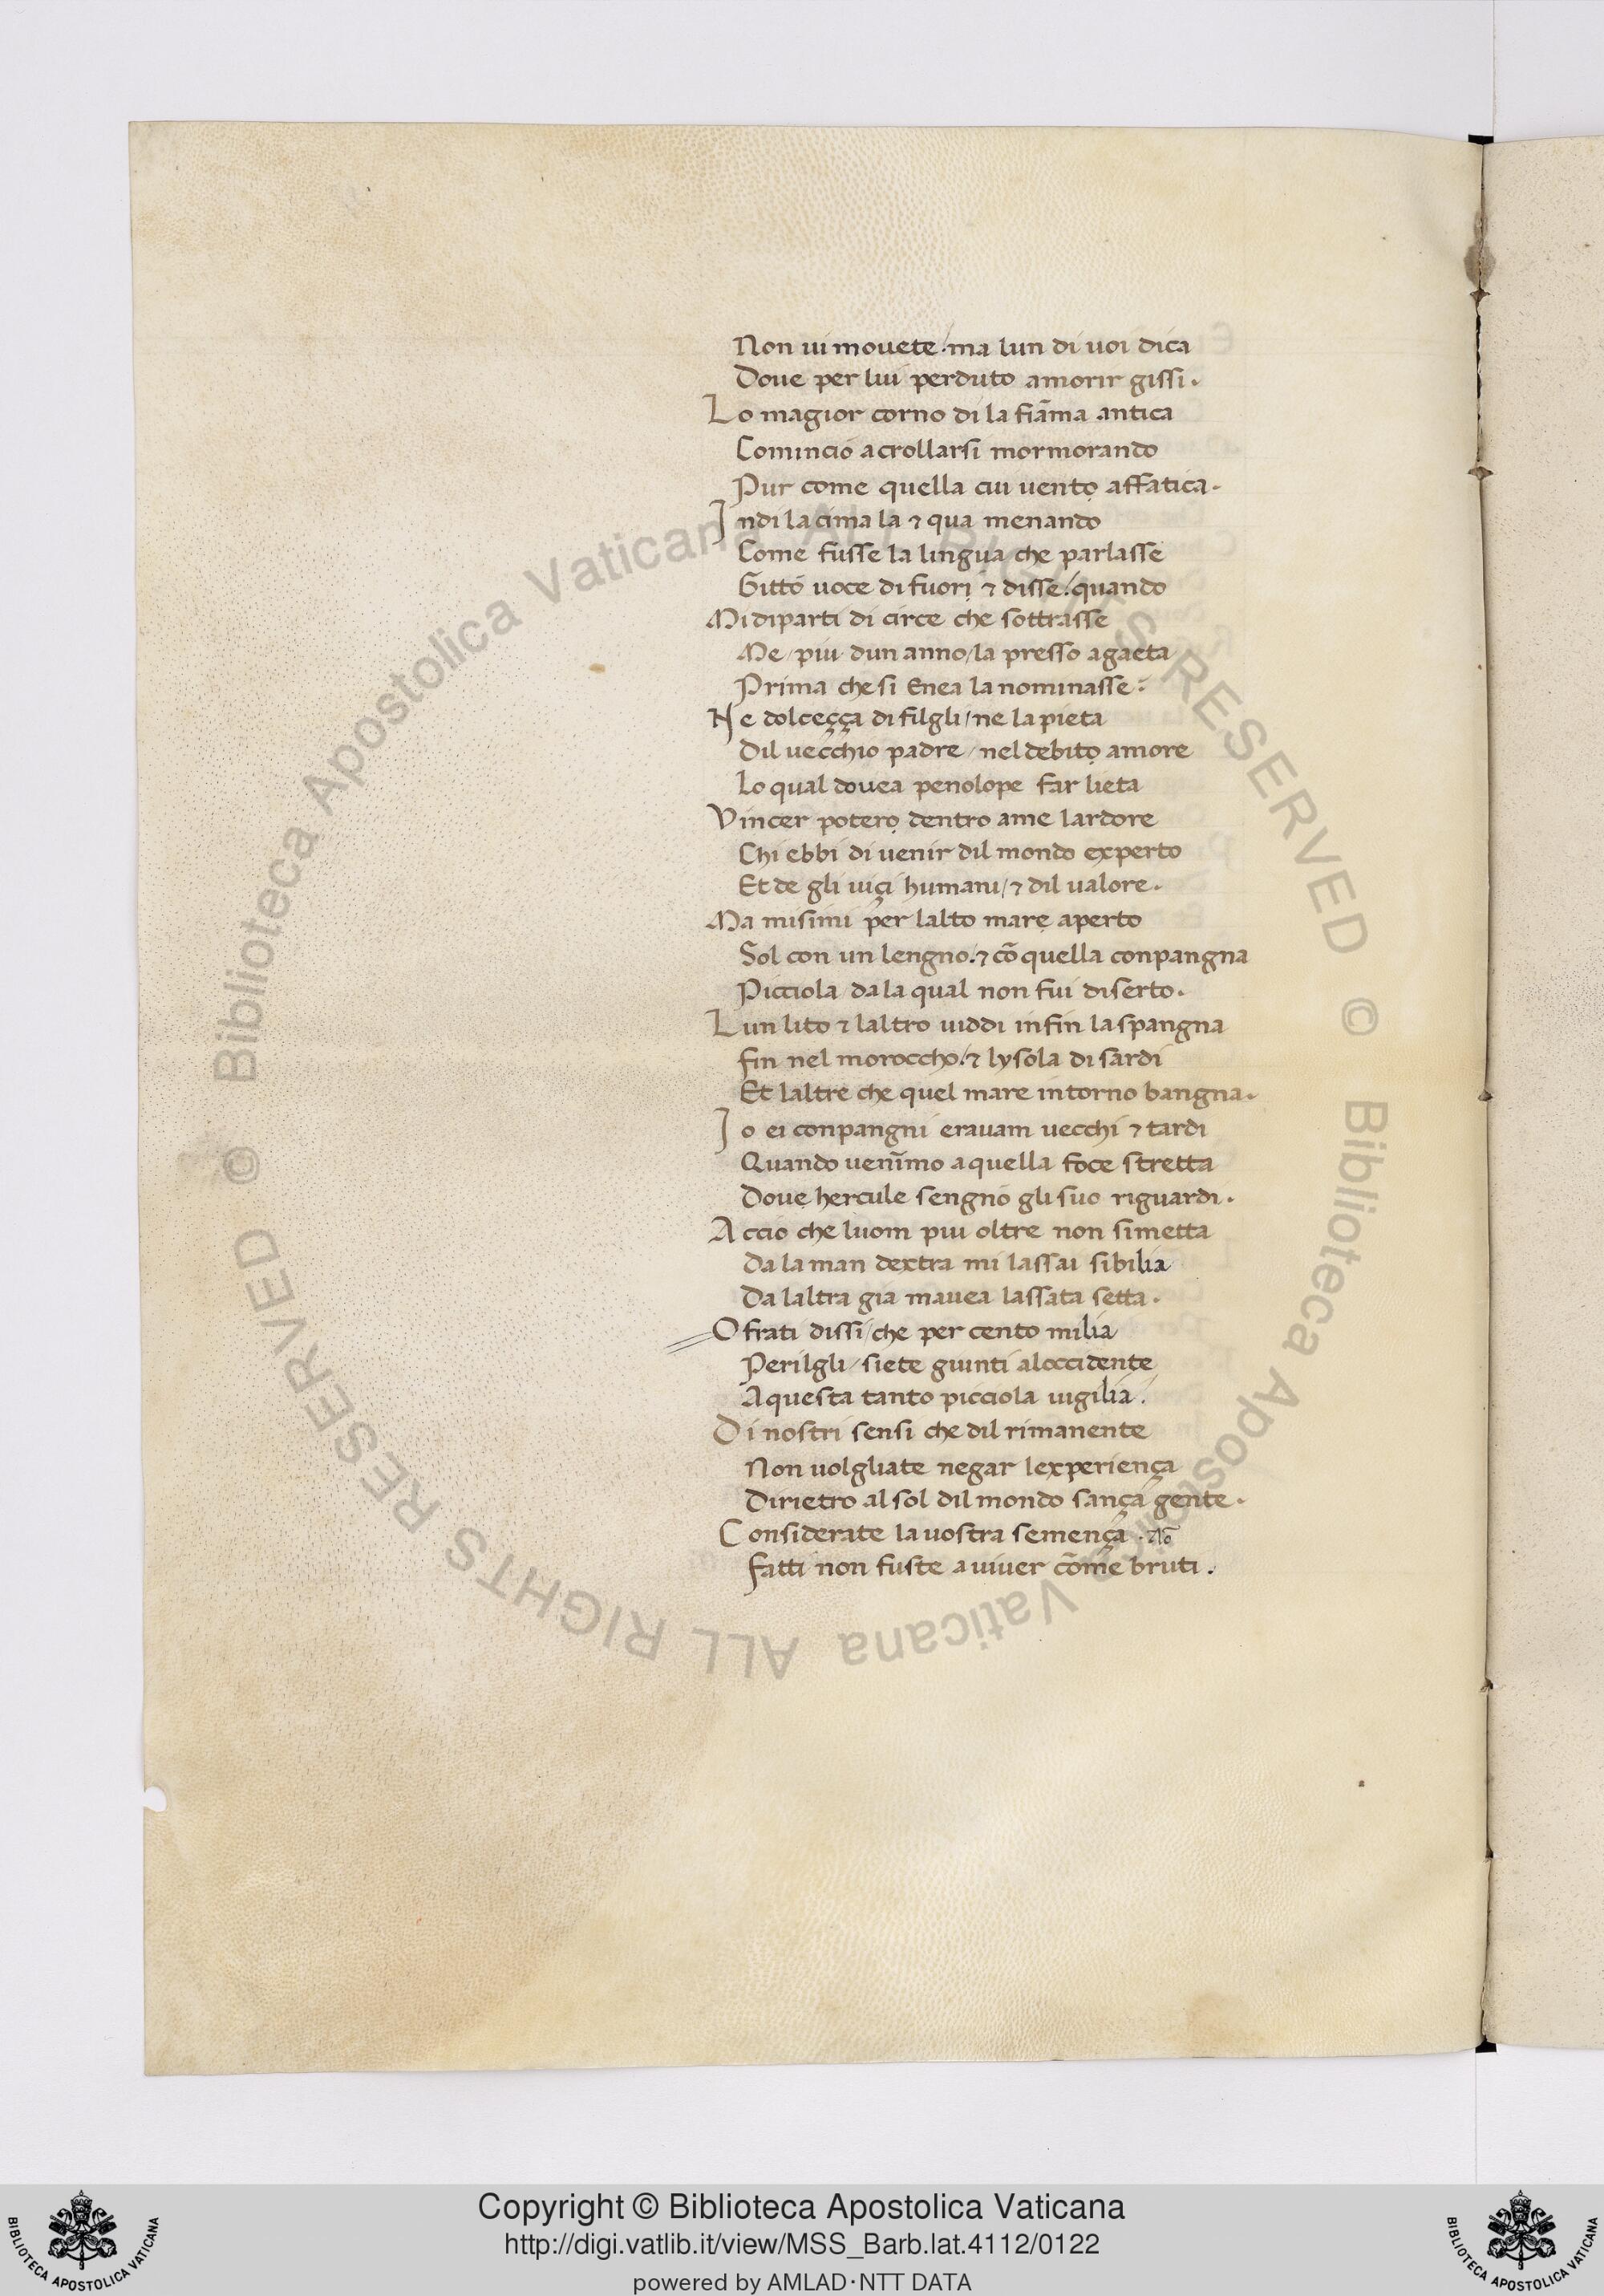 Non ui mouete / ma lun di uoi dica
Doue per lui perduto amorir gissi.
Lo magior corno di la fiāma antica
Cominciò acrollarsi mormorando
Pur come quella cui uentọ affatica.
Indi la cima la ⁊ qua menando
Come fusse la lingua che parlasse
Gittò uoce di fuorị ⁊ disse / quando
Mi diparti di circe che sottrasse
Me / piu dun anno / la presso agaeta
Prima che si Enea la nominasse :
Ne dolceçça di filgli / ne la pieta
Dil uecchio padre / nel debitọ amore
Lo qual douea penolope far lieta
Vincer poterọ dentro ame lardore
Chi ebbi di uenir dil mondo experto
Et de gli uiçi humani / ⁊ dil ualore.
Ma misimi per lalto marẹ aperto
Sol con un lengno / ⁊ cō quella conpangna
Picciola da la qual non fui diserto.
Lun lito ⁊ laltro uiddi infin laspangna
fin nel moroccho / ⁊ lysola di sardi
Et laltre che quel mare intorno bangna.
Io ei conpangni erauam uecchi ⁊ tardi
Quando uenīmo aquella foce stretta
Douẹ hercule sengnò gli suo riguardi.
Acciò che luom piu oltre non simetta
Da la man dextra mi lassai sibilia
Da laltra gia mauea lassata setta.
O frati dissi / che per cento milia
Perilgli / siete giunti aloccidente
Aquesta tanto picciola uigilia.
Di nostri sensi che dil rimanente
Non uolgliate negar lexperiença
Dirietro al sol dil mondo sança gente.
Considerate la uostra semença. Nō
fatti non fuste auiuer cōme bruti.
© Biblioteca Apostolica Vaticana ALL RIGHTS RESERVED © Biblioteca Apostolica Vaticana ALL RIGHTS RESERVED
Copyright © Biblioteca Apostolica Vaticana
http://digi.vatlib.it/view/MSS_Barb.lat.4112/0122
powered by AMLAD·NTT DATA
BIBLIOTECA APOSTOLICA VATICANA
BIBLIOTECA APOSTOLICA VATICANA